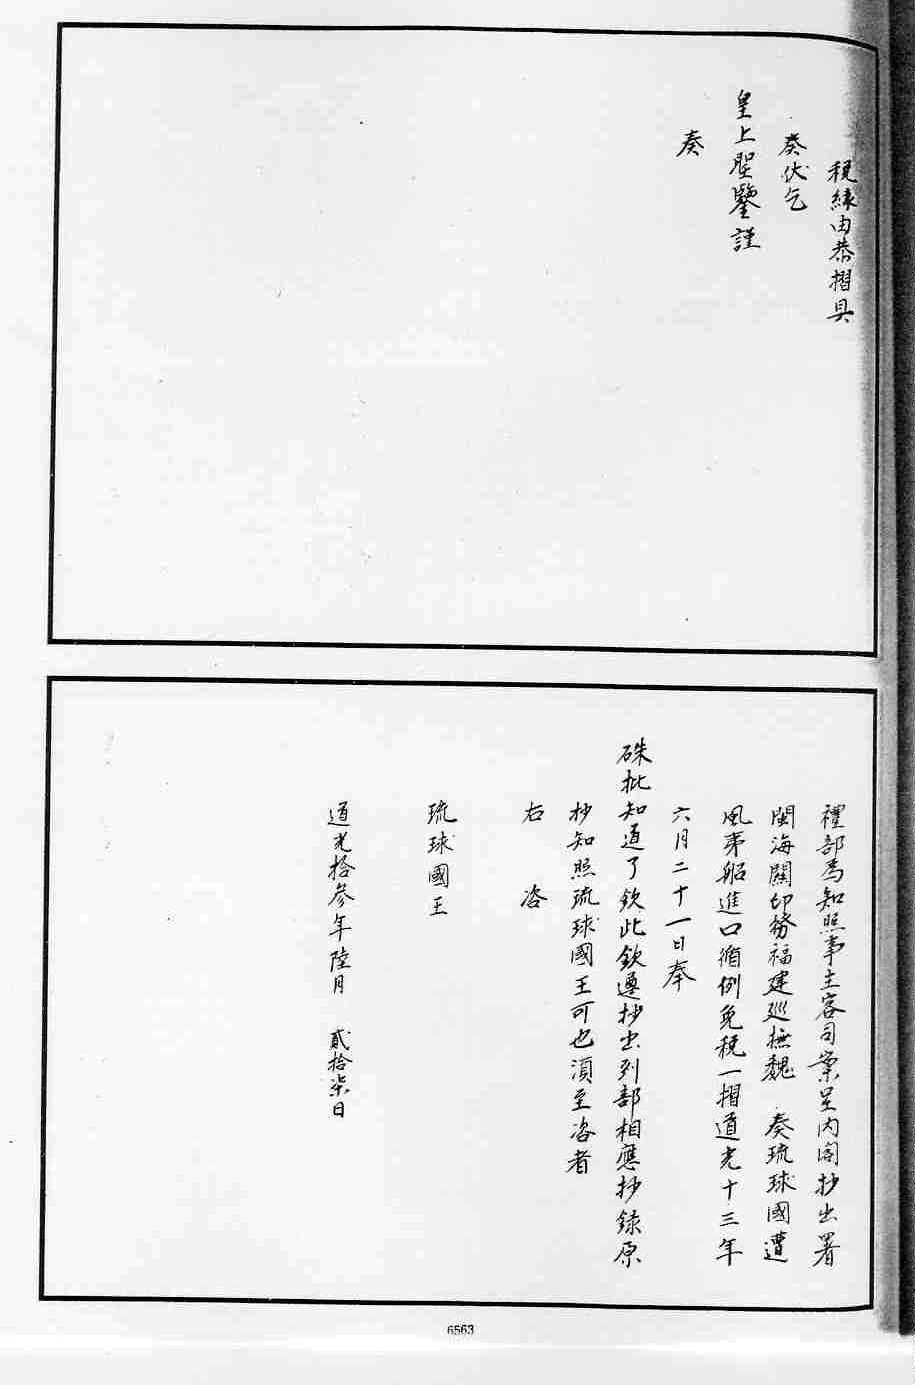 稅緣由恭摺具
奏伏乞
皇上聖鑒謹
奏
禮部為知照事主客司案呈內閣抄出署
閩海關印務福建巡撫魏 奏琉球國遭
風來船進口循例免稅一摺道光十三年
六月二十一日奉
硃批知道了欽此欽遵抄出到部相應抄錄原
抄知照琉球國王可也須至咨者
右 咨
琉球國王
道光拾參年陸月 貳拾柒日
6563